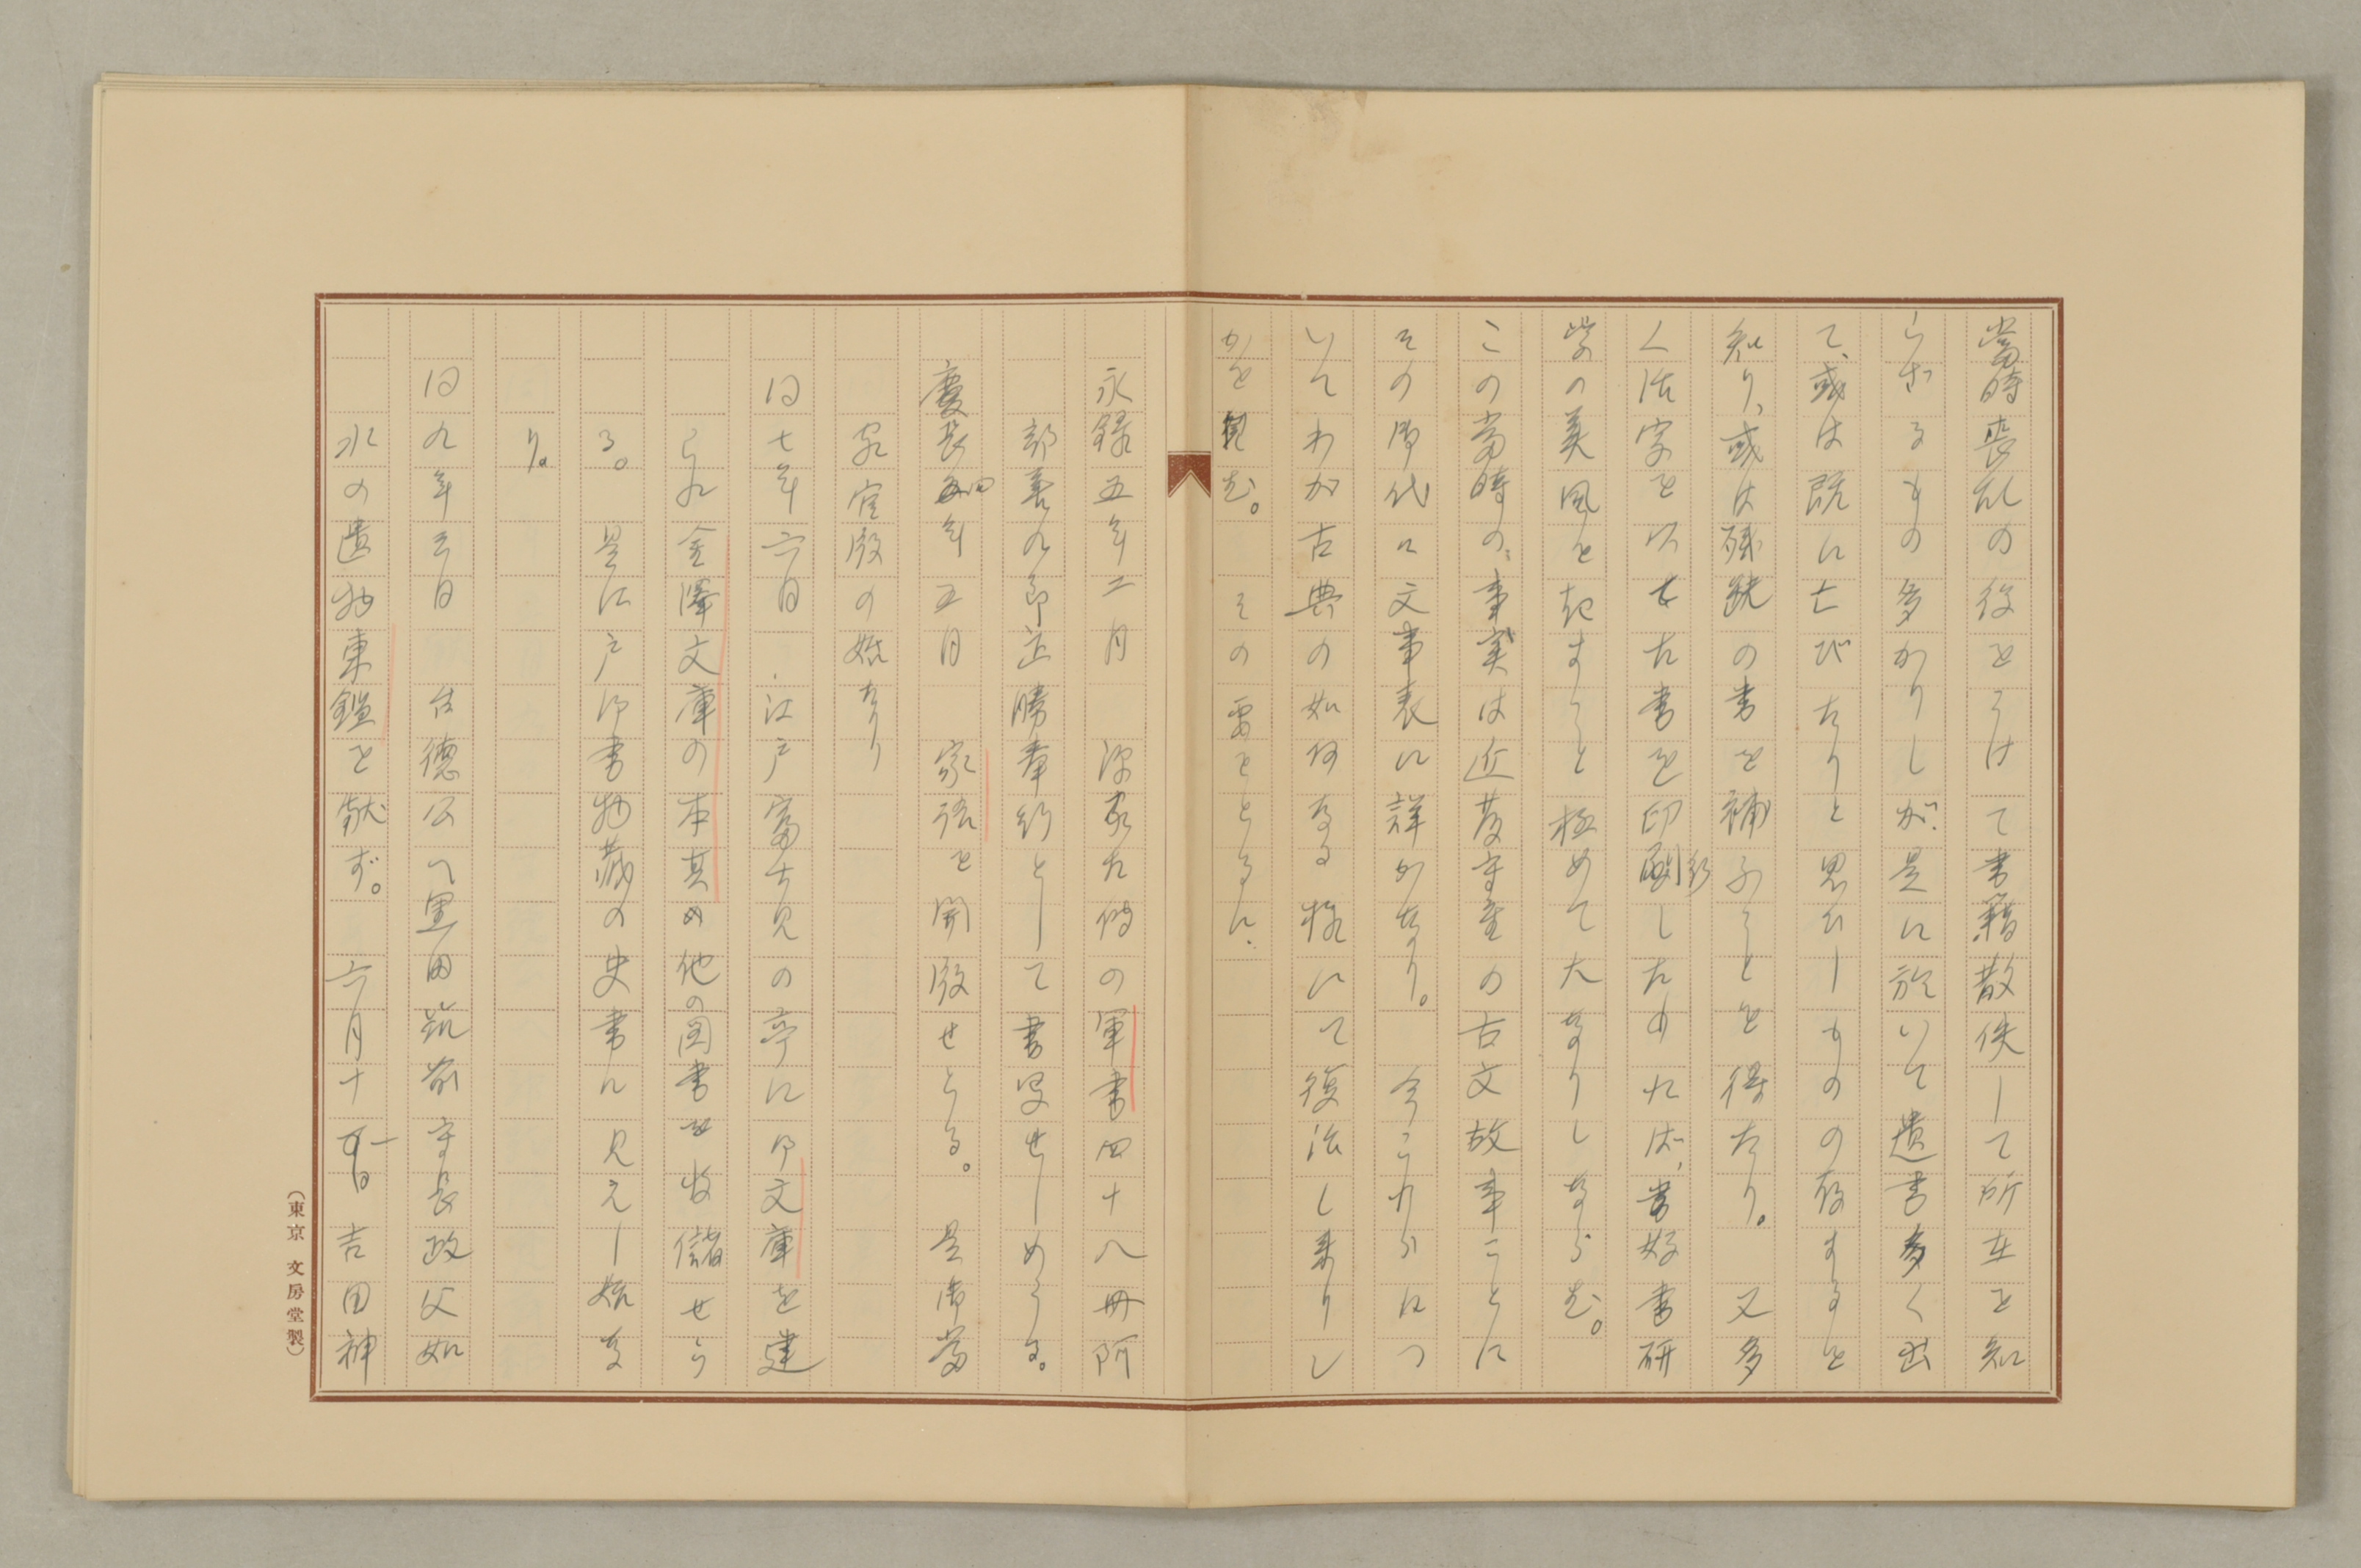 當時喪乱の後をうけて書籍散佚して所在を知
らざるもの多かりしが、是に於いて遺書多く出
て、或は既に亡びたりと思ひしものの存するを
知り、或は殘缺の書を補ふことを得たり。又多
く活字を以て古書を印刷しためれば、書好書研
學の美風を起すこと極めて大なりしならむ。
この當時の事実は近藤守重の古文故事ことに
その御代に文事表に詳かなり。今これらにつ
いてわが古典の如何なる様にて復活し来りし
かを見む。その要をとるに、
永録五年二月　源家古傳の軍書四十八冊阿
部善九郎正勝奉行として書写せしめらる。
慶長四年五月　家語を開版せらる。是御當
家官版の始なり
同七年六月　江戸富士見の亭に御文庫を建
られ金澤文庫の本其の他の図書を收儲せら
る。是江戸御書物蔵の史書に見えし始な
り。
同九年三月　台德公へ黒田筑前守長政父如
水の遺物東鑑を献ず。六月十一日吉田神
（東京　文房堂製）